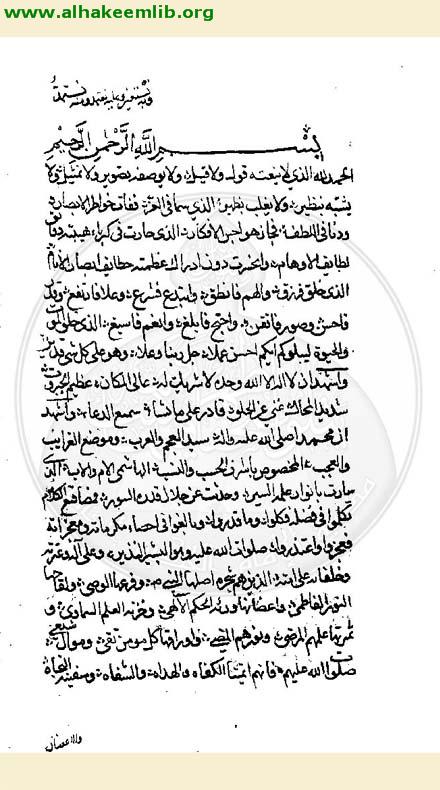 www.alhakeemlib.org
وبه نستعين وعليه نعتمد ومنه نستمد
بسم الله الرحمن الرحيم
الحمد لله الذي لا ينعته قوله ولا قيل ولا يوصف بتصوير ولا تمثيل ولا
يشبه بنظير ولا يغلب بظهير الذي سما في العز ففات خواطر الابصار
ودنا في اللطف فجاز هواجس الافكار الذي حارت في كبرياء هيبته دقائق
لطايف الاوهام وانحسرت دون ادراك عظمته خطايف ابصار الانام
الذي خلق فرزق والهم فانطق وابتدع فشرع وعلا فارتفع وقدر
فاحسن وصور فاتقن واحتج فابلغ وانعم فاسبغ الذي خلق الموت
والحيوة ليبلوكم ايكم احسن عملا جل ربنا وعلا وهو على كل شي قدير
واشهد ان لا اله الا الله وحده لا شريك له عالي المكان عظيم الجبروت
شديد المحال غني عن الخلق قادر على ما يشاء سميع الدعاء واشهد
ان محمدا صلى الله عليه واله سيد العجم والعرب وموضع الغرايب
والعجب المخصوص باشرف الحسب والنسب الهاشمي الام والاب الذي
بانوار علم السير جلال قدره السور
تكلموا في فضله فكلوا وما قدروا وبالغوا في احصاء مكرماته ومعجزاته
فعجزوا واعتذروا صلوات الله عليه وهو البشير النذير وعلى آله وعترته
وخلفائه على امته الذين هم شجرة اصلها النبي وفرعها الوصي ولقاحها
النور الفاطمي واغصانها وزراء الحكم الآلهي وخزنة العلم السماوي و
ثمرتها علمهم المرضي ونورهم المضي واوراقها كل مومن تقي وموال شيعي
صلوات الله عليهم فانهم ائمتنا الكفاه والهداه والشفاه وسفينة النجاة